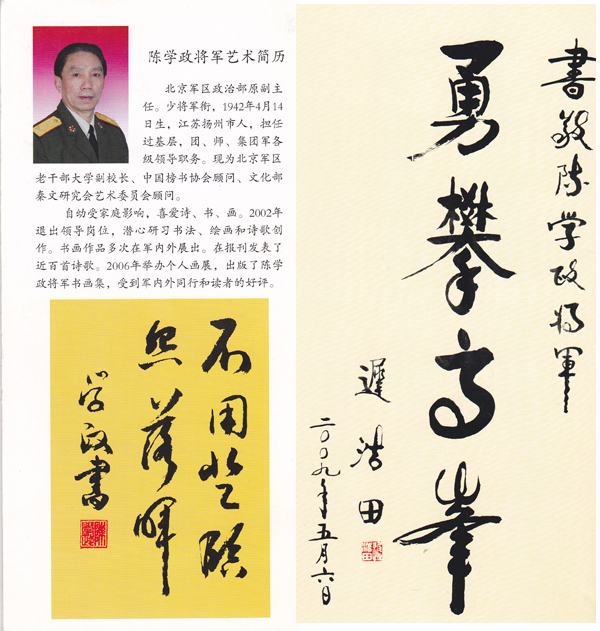 陈学政将军艺术简历
北京军区政治部原副主
任。少将军衔，1942年4月14
日生，江苏扬州市人，担任
过基层，团、师、集团军各
级领导职务。现为北京军区
老干部大学副校长、中国榜书协会顾问、文化部
秦文研究会艺术委员会顾问。
自动受家庭影响，喜爱诗、书、画。2002年
退出领导岗位，潜心研习书法、绘画和诗歌创
作。书画作品多次在军内外展出。在报刊发表了
近百首诗歌。2006年举办个人画展，出版了陈学
政将军书画集，受到军内外同行和读者的好评。
不用登临
怨落暉
学政書
書敬陈学政将軍
勇攀高峯
遲浩田
二〇〇九年五月六日